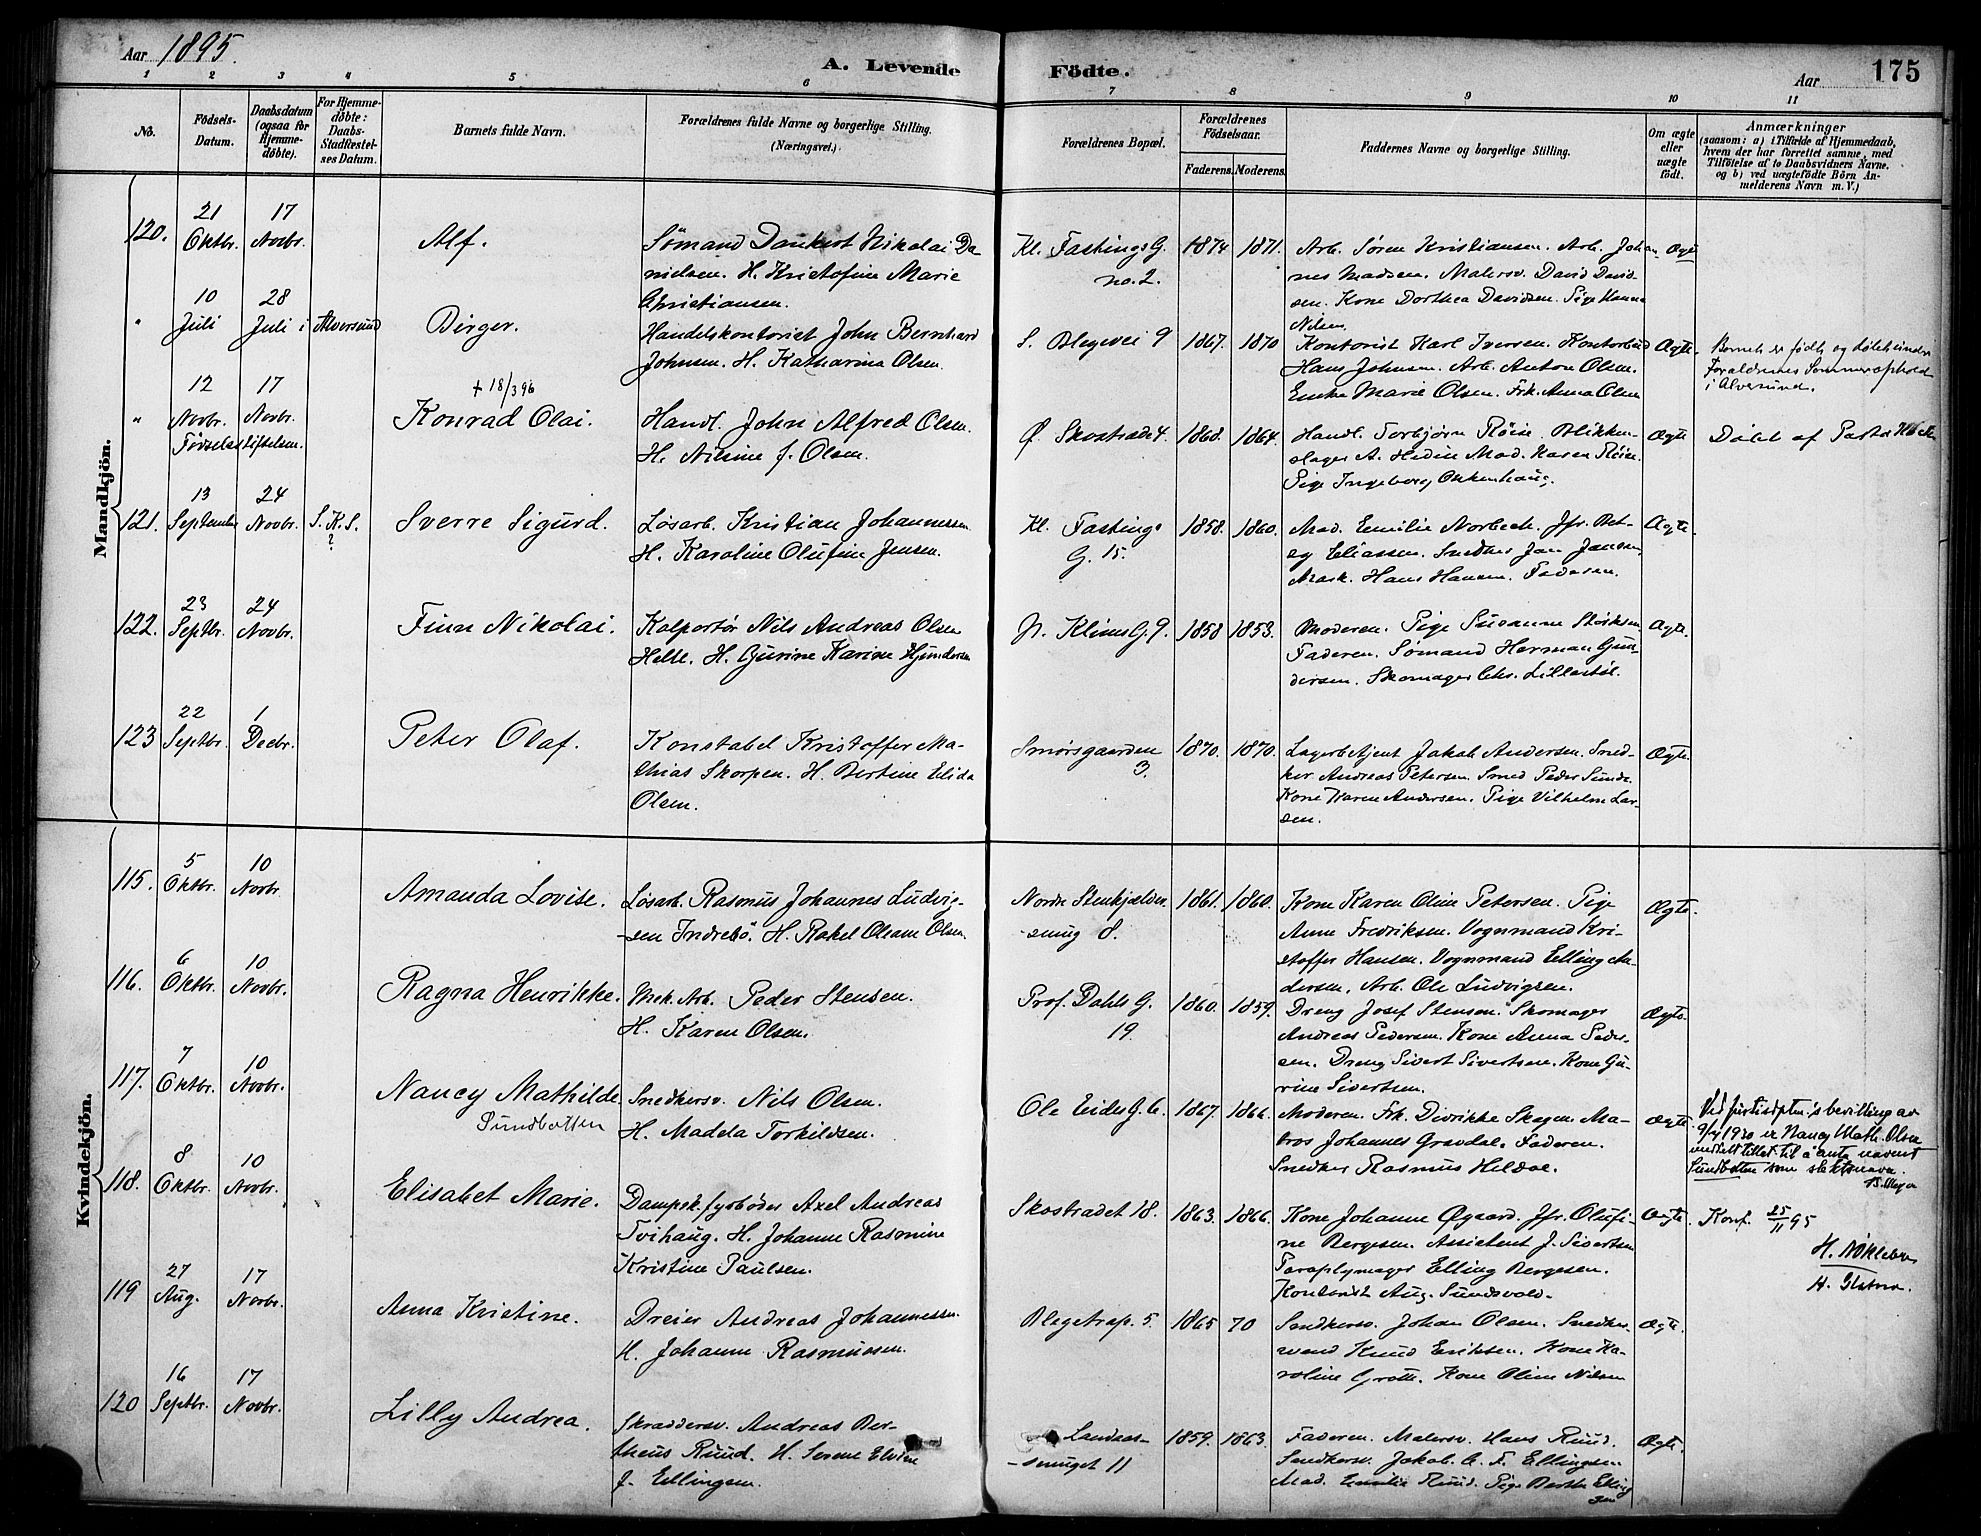 Aar 1895.
A. Levende Födte.
Aar 175
1 2 3 4 5 6 7 8 9 10 11
No.
Födsels-Datum.
Daabsdatum (ogsaa for Hjemme-döbte).
For Hjemme-döbte: Daabs-Stadfæstel-ses Datum.
Barnets fulde Navn.
Forældrenes fulde Navne og borgerlige Stilling.
(Næringsvei.)
Forældrenes Bopæl.
Forældrenes Födselsaar.
Faderens. Moderens.
Faddernes Navne og borgerlige Stilling.
Om ægte eller uægte födt.
Anmærkninger
(saasom: a) i Tilfælde af Hjemmedaab,
hvem der har forrettet samme, med
Tilföielse af to Daabsvidners Navne.
og b) ved uægtefödte Börn An-
melderens Navn m. V.)
Mandkjön.
120. 21 Oktbr. 17 Novbr. Alf.
Sömand Dankert Nikolai Da
nielsen. H. Kristofine Marie
Christiansen.
Kl. Fastings G.
no. 2.
1874 1871.
Arb. Søren Kristiansen. Arb. Johan
nes Madsen. Malersv. David David
sen. Kone Dorthea Davidsen. Pige Hanna
Nilsen.
Ægte
" 10 Juli 28 Juli i Alversund Birger.
Handelskontorist John Bernhard
Johnsen. H. Katharina Olsen.
S. Blegevei 9 1867. 1870
Kontorist Karl Iversen. Kontorbud
Hans Johnsen. Arb. Anton Olsen.
Enke Marie Olsen. Frk. Anna Olsen
Ægte.
Barnet er født og døbt under
Forældrenes Sommerophold
i Alversund.
" 12 Novbr. 17 Novbr.
Fødselsstiftelsen.
+ 18/3 96
Konrad Olai.
Handl. John Alfred Olsen.
H. Nilsine f. Olsen.
Ø. Skostrædet 4. 1868. 1864.
Handl. Torbjørn Røise. Blikken-
slager A. Hedin Mad. Karen Røise.
Pige Ingeborg
Ægte
Døbt af Pastor
121. 13 September 24 Novbr. S. K. S.
?
Sverre Sigurd.
Løsarb. Kristian Johannessen
H. Karoline Olufine Jensen.
Kl. Fastings
G. 15.
1858. 1860.
Mad. Emilie Norbech. Jfr. Bet-
sy Eliassen. Snedker Jan Jansen
Mask. Hans Hansen. Faderen.
Ægte.
122. 23 Septbr. 24 Novbr. Finn Nikolai.
Kolportør Nils Andreas Olsen
Helle. H. Gurine Karine Gundersen
N. Klines G. 9. 1858 1853.
Moderen. Pige Susanne
Faderen. Sømand Herman Gun-
dersen. Skomager Chr. Lillestøl.
Ægte.
123 22 Septbr. 1 Decbr. Peter Olaf.
Konstabel Kristoffer Ma-
thias Skorpen. H. Bertine Elida
Olsen.
Smørsgaarden
3.
1870. 1870.
Agent Jakob Andersen. Sned-
ker Andreas Petersen. Smed Peder Sunde
Kone Karen Andersen. Pige Vilhelm Lar-
sen.
Ægte.
Kvindekjön.
115. 5 Oktbr. 10 Novbr. Amanda Lovise.
Løsarb. Rasmus Johannes Ludvig-
sen Indrebø. H. Rakel Oleane Olsen.
Nordre Stenkjælder
-smug 8.
1861. 1860.
Kone Karen Oline Petersen. Pige
Anne Fredriksen. Vognmand Kri-
stoffer Hansen. Vognmand Elling An-
dersen. Arb. Ole Ludvigsen.
Ægte.
116. 6 Oktbr. 10 Novbr. Ragna Henrikke.
Mek. Arb. Peder Stensen.
H. Karen Olsen.
Prof. Dahls G.
19.
1860. 1859.
Dreng Josef Stensen. Skomager
Andreas Pedersen. Kone Anna Peder-
sen. Dreng Sivert Sivertsen. Kone Gu-
rine Sivertsen.
Ægte.
117. 7 Oktbr. 10 Novbr. Nancy Mathilde.
Sundbotten
Snedkersv. Nils Olsen.
H. Madela Torkildsen.
Ole Eides G. 6. 1867. 1866.
Moderen. Frk. Divrikke Skagen. Ma-
tros Johannes Gravdal. Faderen.
Snedker Rasmus Heldal.
Ægte
Ved justisdpten's bevilling av
9/4 1930 er Nancy Math. Olsen
meddelt tillatelse til å anta navnet
Sundbotten som slektsnavn.
118. 8 Oktbr. 10 Novbr. Elisabet Marie.
Dampsk.fyrbøder Axel Andreas
Tvihaug. H. Johanne Rasmine
Kristine Paulsen.
Skostrædet 18. 1863. 1866.
Kone Johanne Øgaard. Jfr. Olufi-
ne Bergesen. Assistent J. Sivertsen
Paraplymager Elling Bergesen.
Konditor Aug. Sundsvold.
Ægte.
Konf. 25/11 95
119 27 Aug. 17 Novbr. Anna Kristine.
Dreier Andreas Johannessen.
H. Johanne Rasmussen.
Blegetrap. 5. 1865 70
Snedkersv. Johan Olsen. Snedker-
svend Knud Eriksen. Kone Ka-
roline Grotte. Kone Oline Nilsen
Ægte.
120 16 Septbr. 17 Novbr. Lilly Andrea.
Skræddersv. Andreas Ber-
theus Ruud. H. Serene Elvine
f. Ellingsen.
Landaas-
-smuget 11
1859. 1863.
Faderen. Malersv. Hans Ruud.
Snedkersv. Jakob C. F. Ellingsen
Mad. Emilie Ruud. Pige Berthe Elling
sen
Ægte.